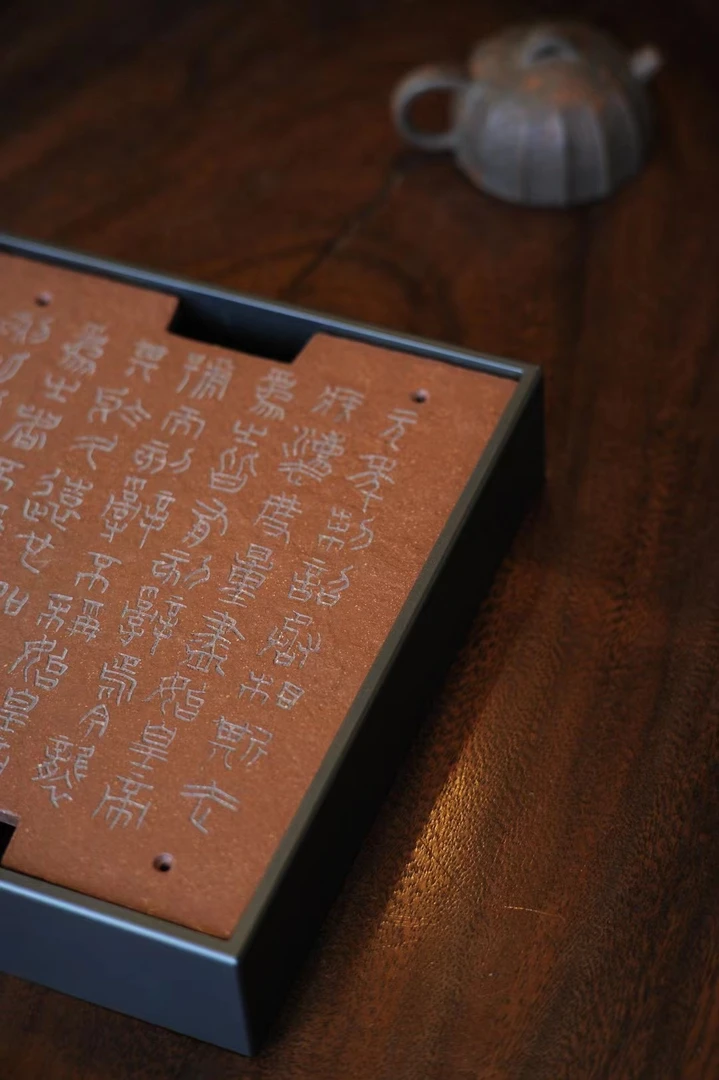 元年制詔丞相斯去
疾灋度量盡始皇帝
為之皆有刻辭焉今襲
號而刻辭不稱始皇帝
其於久遠也如
為之者不
刻此